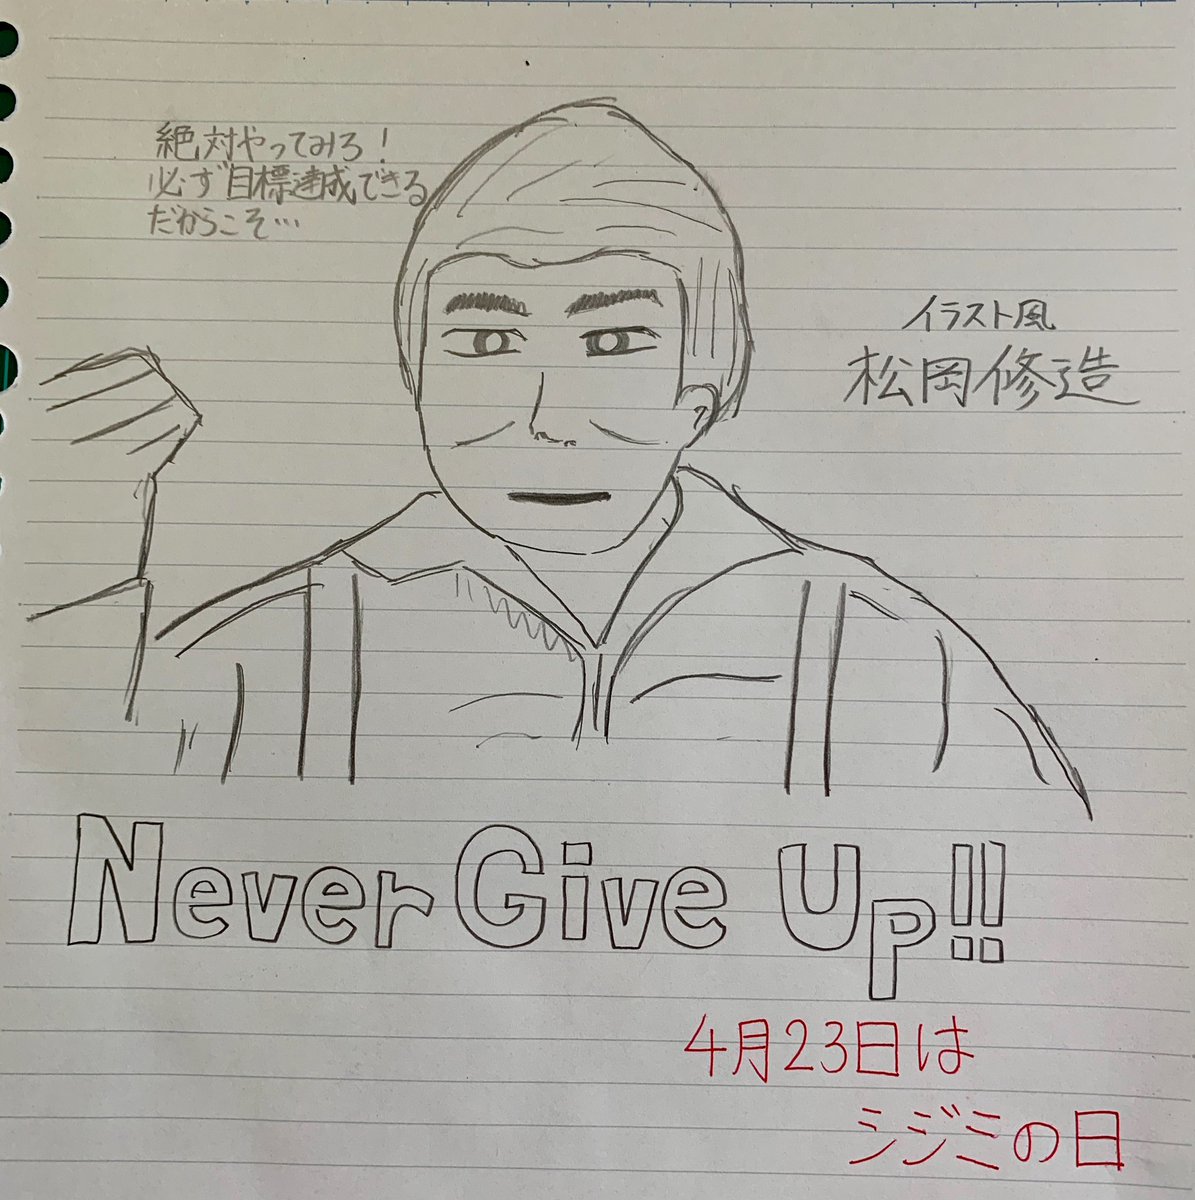 絶対やってみろ！
必ず目標達成できる
だからこそ…
イラスト風
松岡修造
Never Give Up!!
4月23日は
シジミの日